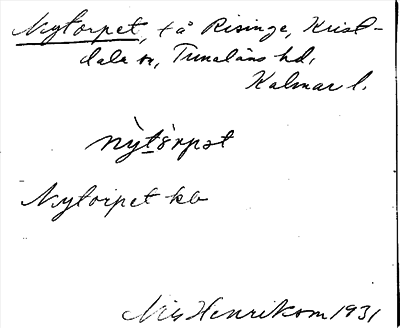 Nytorpet, t å Risinge, Krist-
dala sn, Tunaläns hd,
Kalmar l.
nỳtò̱rpət
Nytorpet kb
Nils Henrikom 1931